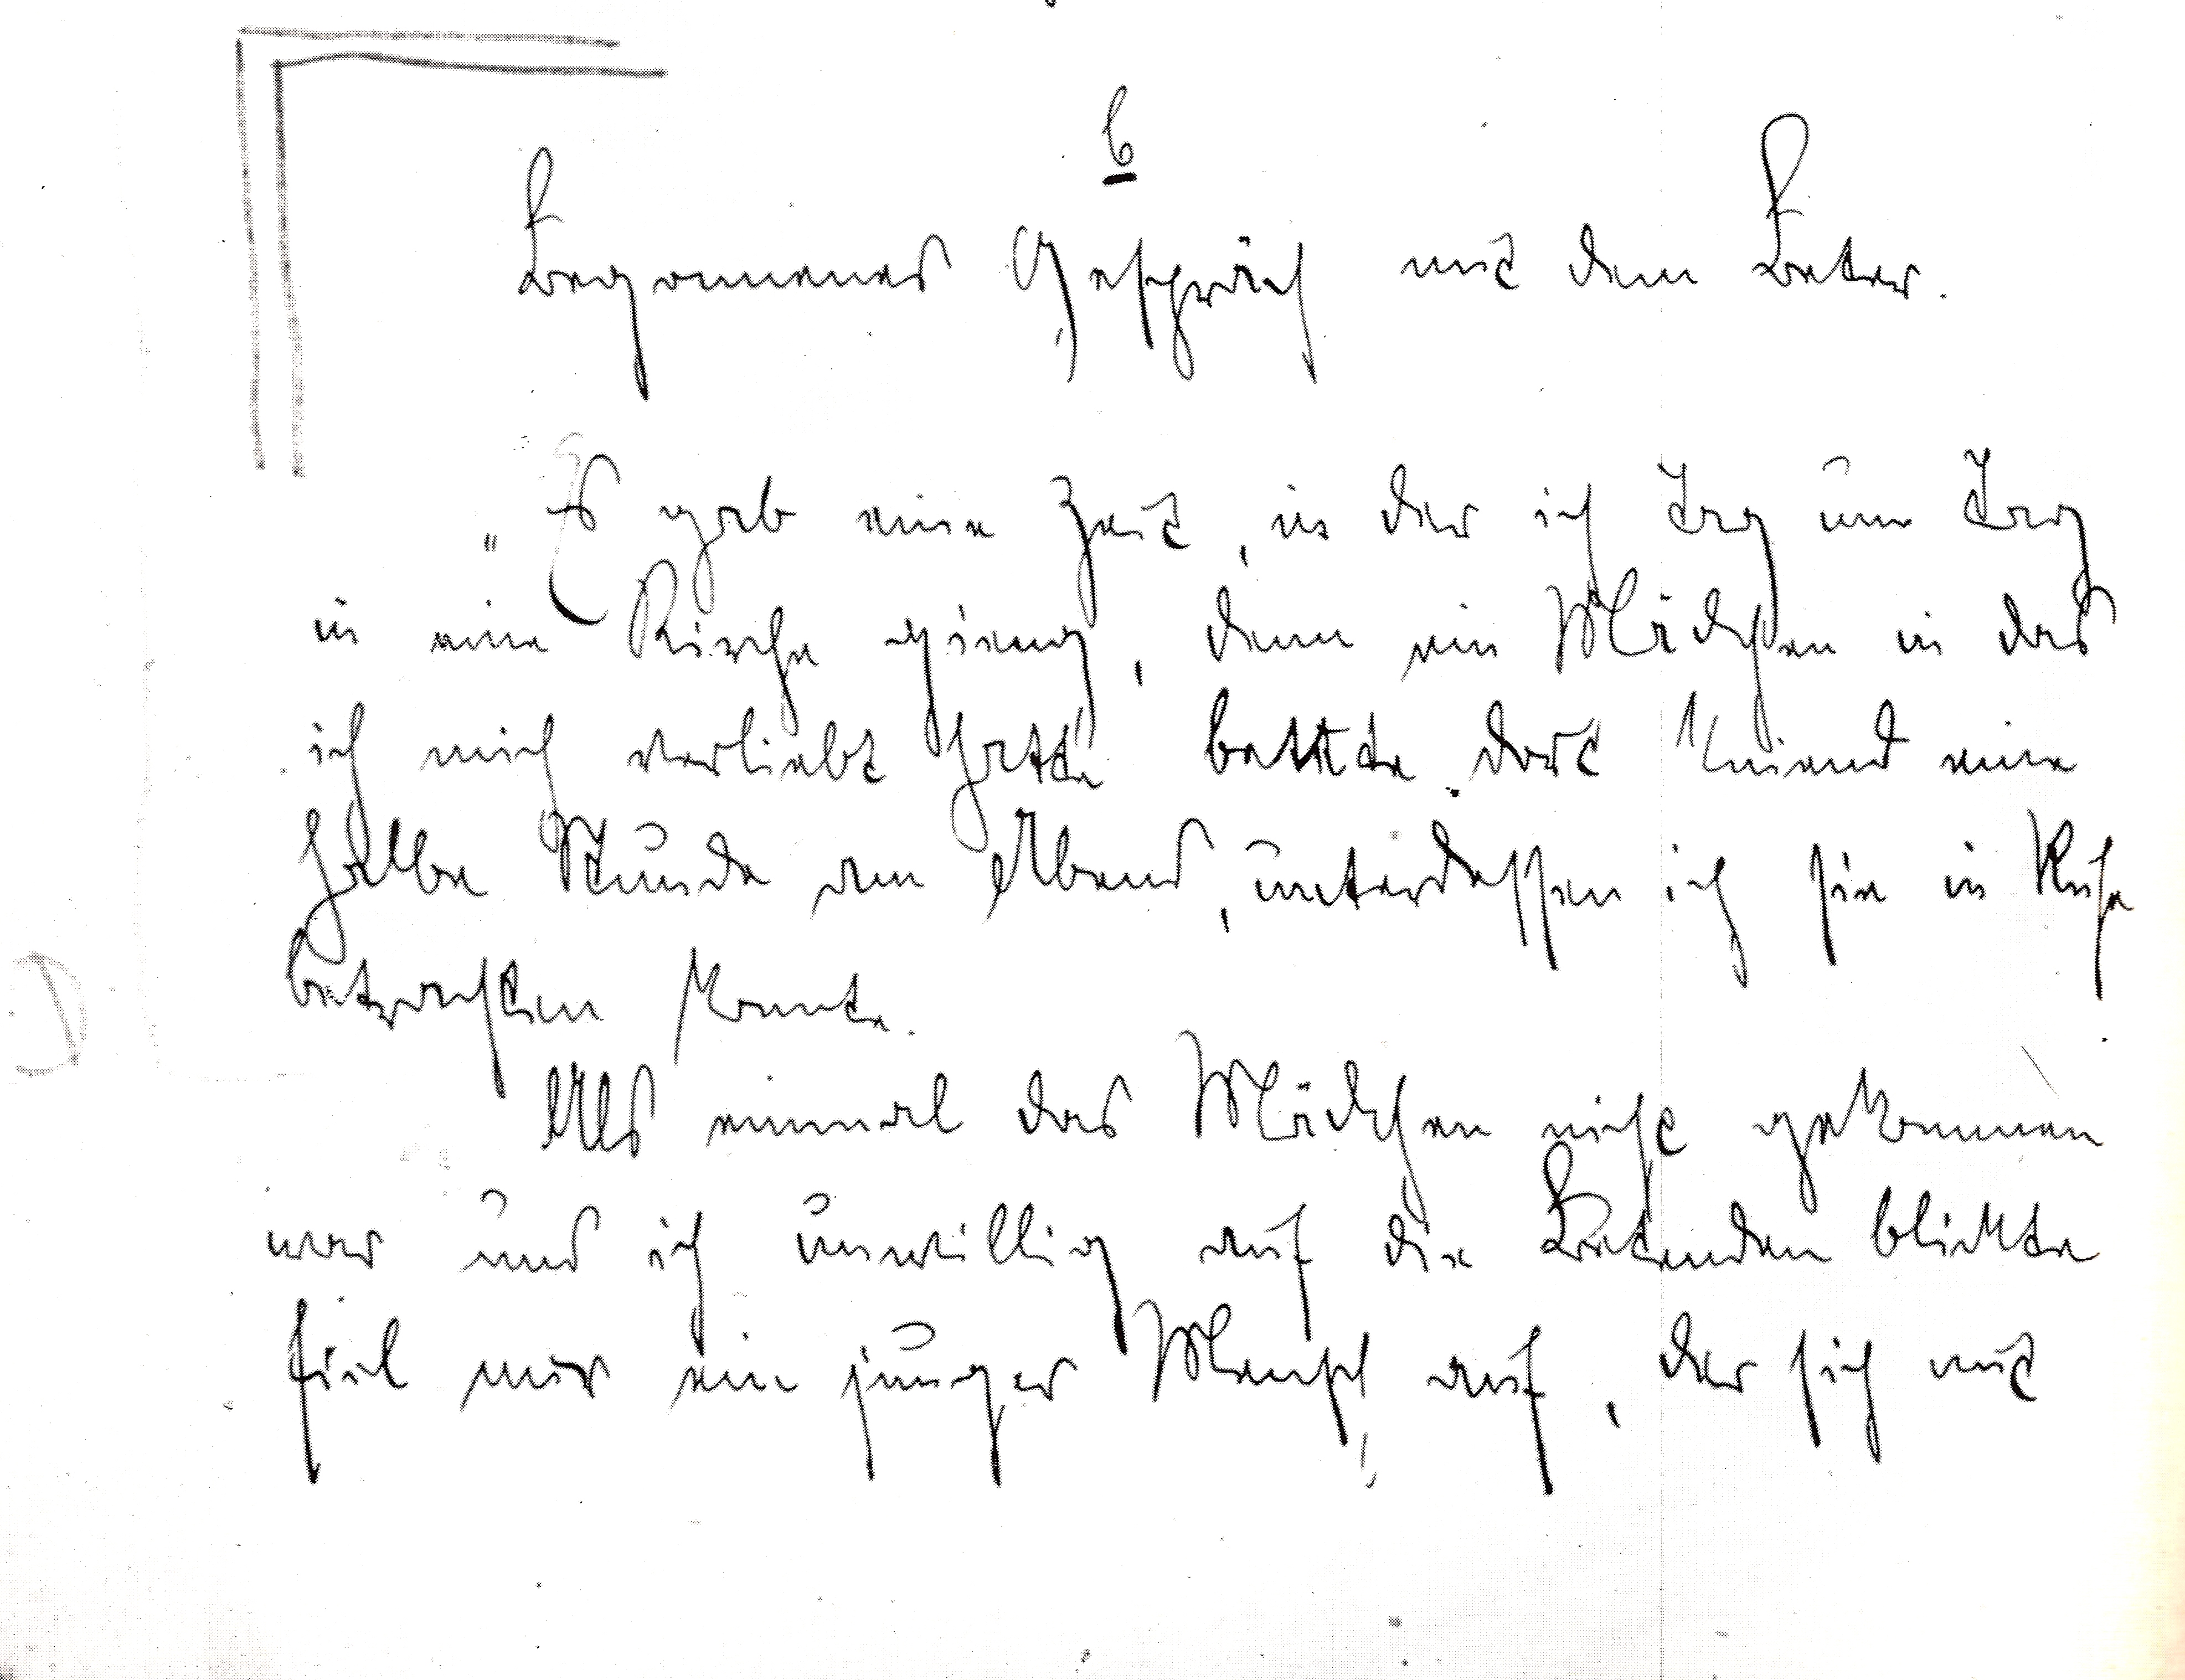 b
Begonnenes Gespräch mit dem Beter.
„Es gab eine Zeit, in der ich Tag um Tag
in eine Kirche gieng, denn ein Mädchen in das
ich mich verliebt hatte betete dort kniend eine
halbe Stunde am Abend, unterdessen ich sie in Ruhe
betrachten konnte.
Als einmal das Mädchen nicht gekommen
war und ich unwillig auf die Betenden blickte
fiel mir ein junger Mensch auf, der sich mit